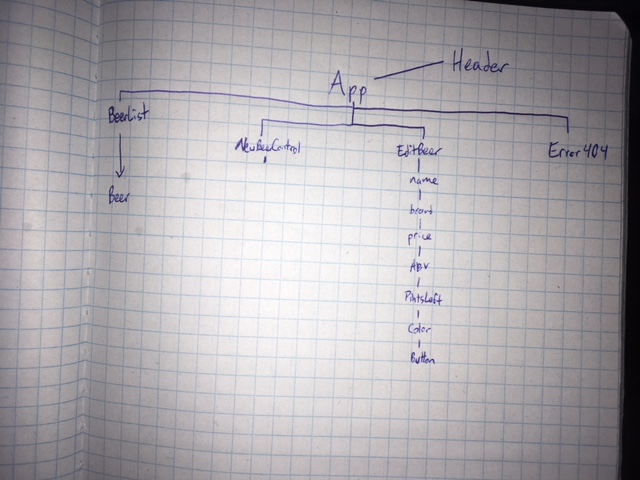 Header
App
BeerList
Beer
NewBeerControl
EditBeer
name
brand
price
ABV
PintsLeft
Color
Button
Error404